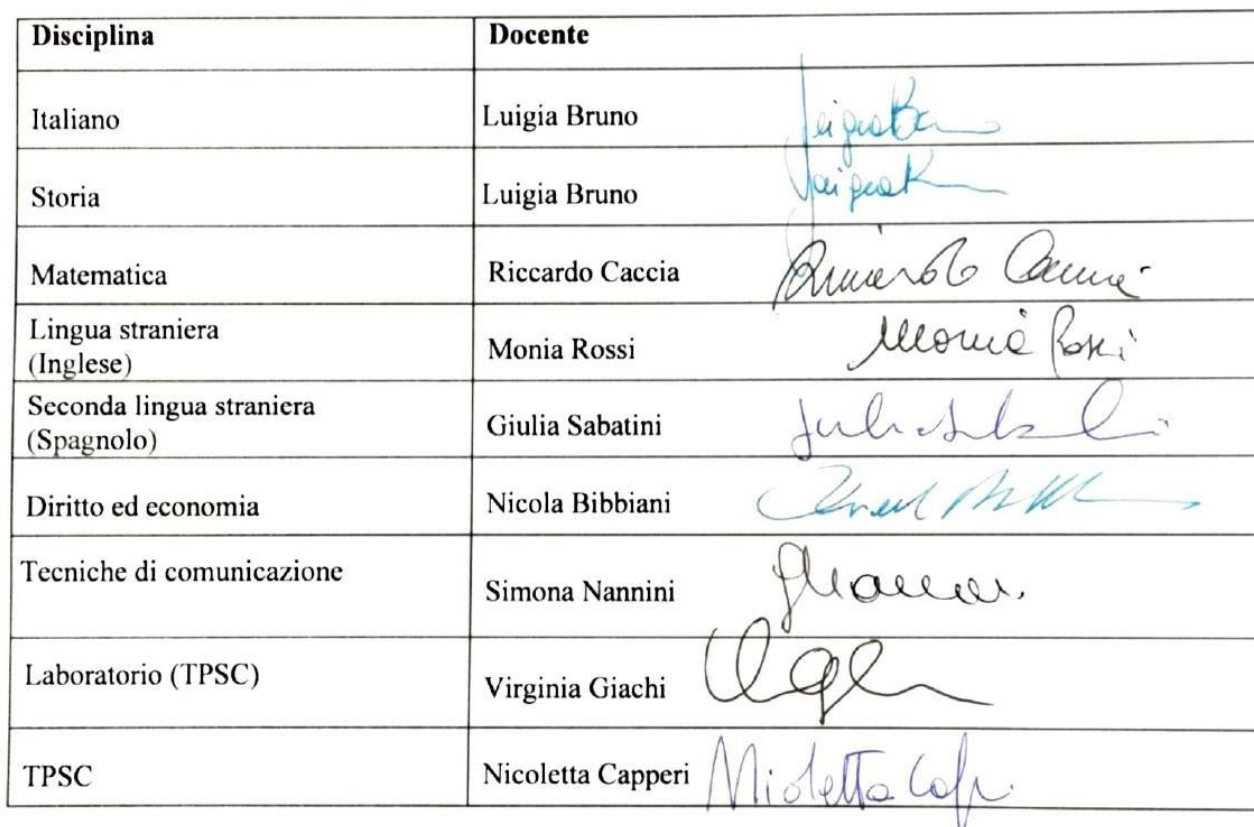 Disciplina Docente
Italiano Luigia Bruno
Storia Luigia Bruno
Matematica Riccardo Caccia
Lingua straniera
(Inglese) Monia Rossi Monia Rossi
Seconda lingua straniera
(Spagnolo) Giulia Sabatini
Diritto ed economia Nicola Bibbiani
Tecniche di comunicazione Simona Nannini
Laboratorio (TPSC) Virginia Giachi
TPSC Nicoletta Capperi